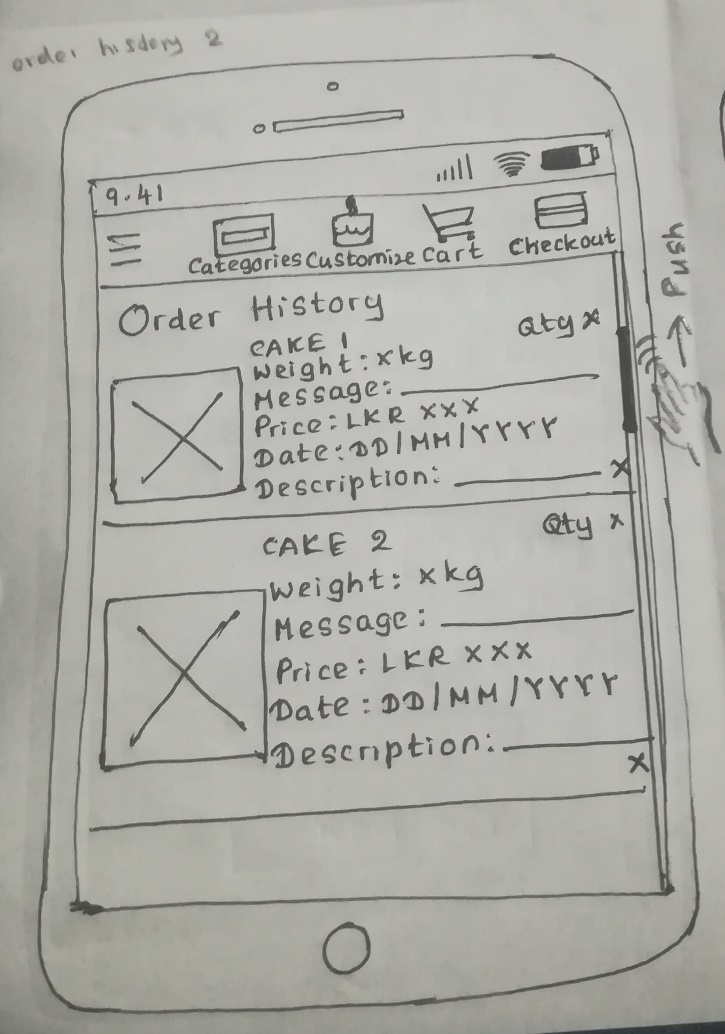 order history 2
9.41
Categories Customize Cart Checkout
Push
Order History
Qty x
CAKE 1
Weight: xkg
Message:
Price: LKR xxx
Date: DD/MM/YYYY
Description:
x
Qty x
CAKE 2
Weight: xkg
Message:
Price: LKR xxx
Date: DD/MM/YYYY
Description:
x